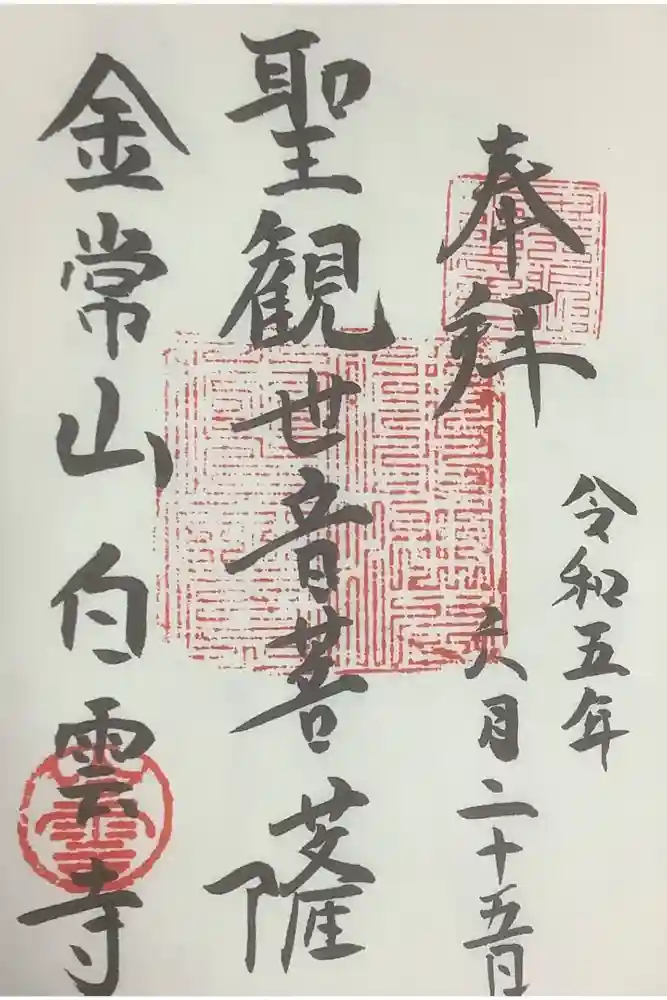 奉拝
令和五年
六月二十五日
聖観世音菩薩
金常山白雲寺